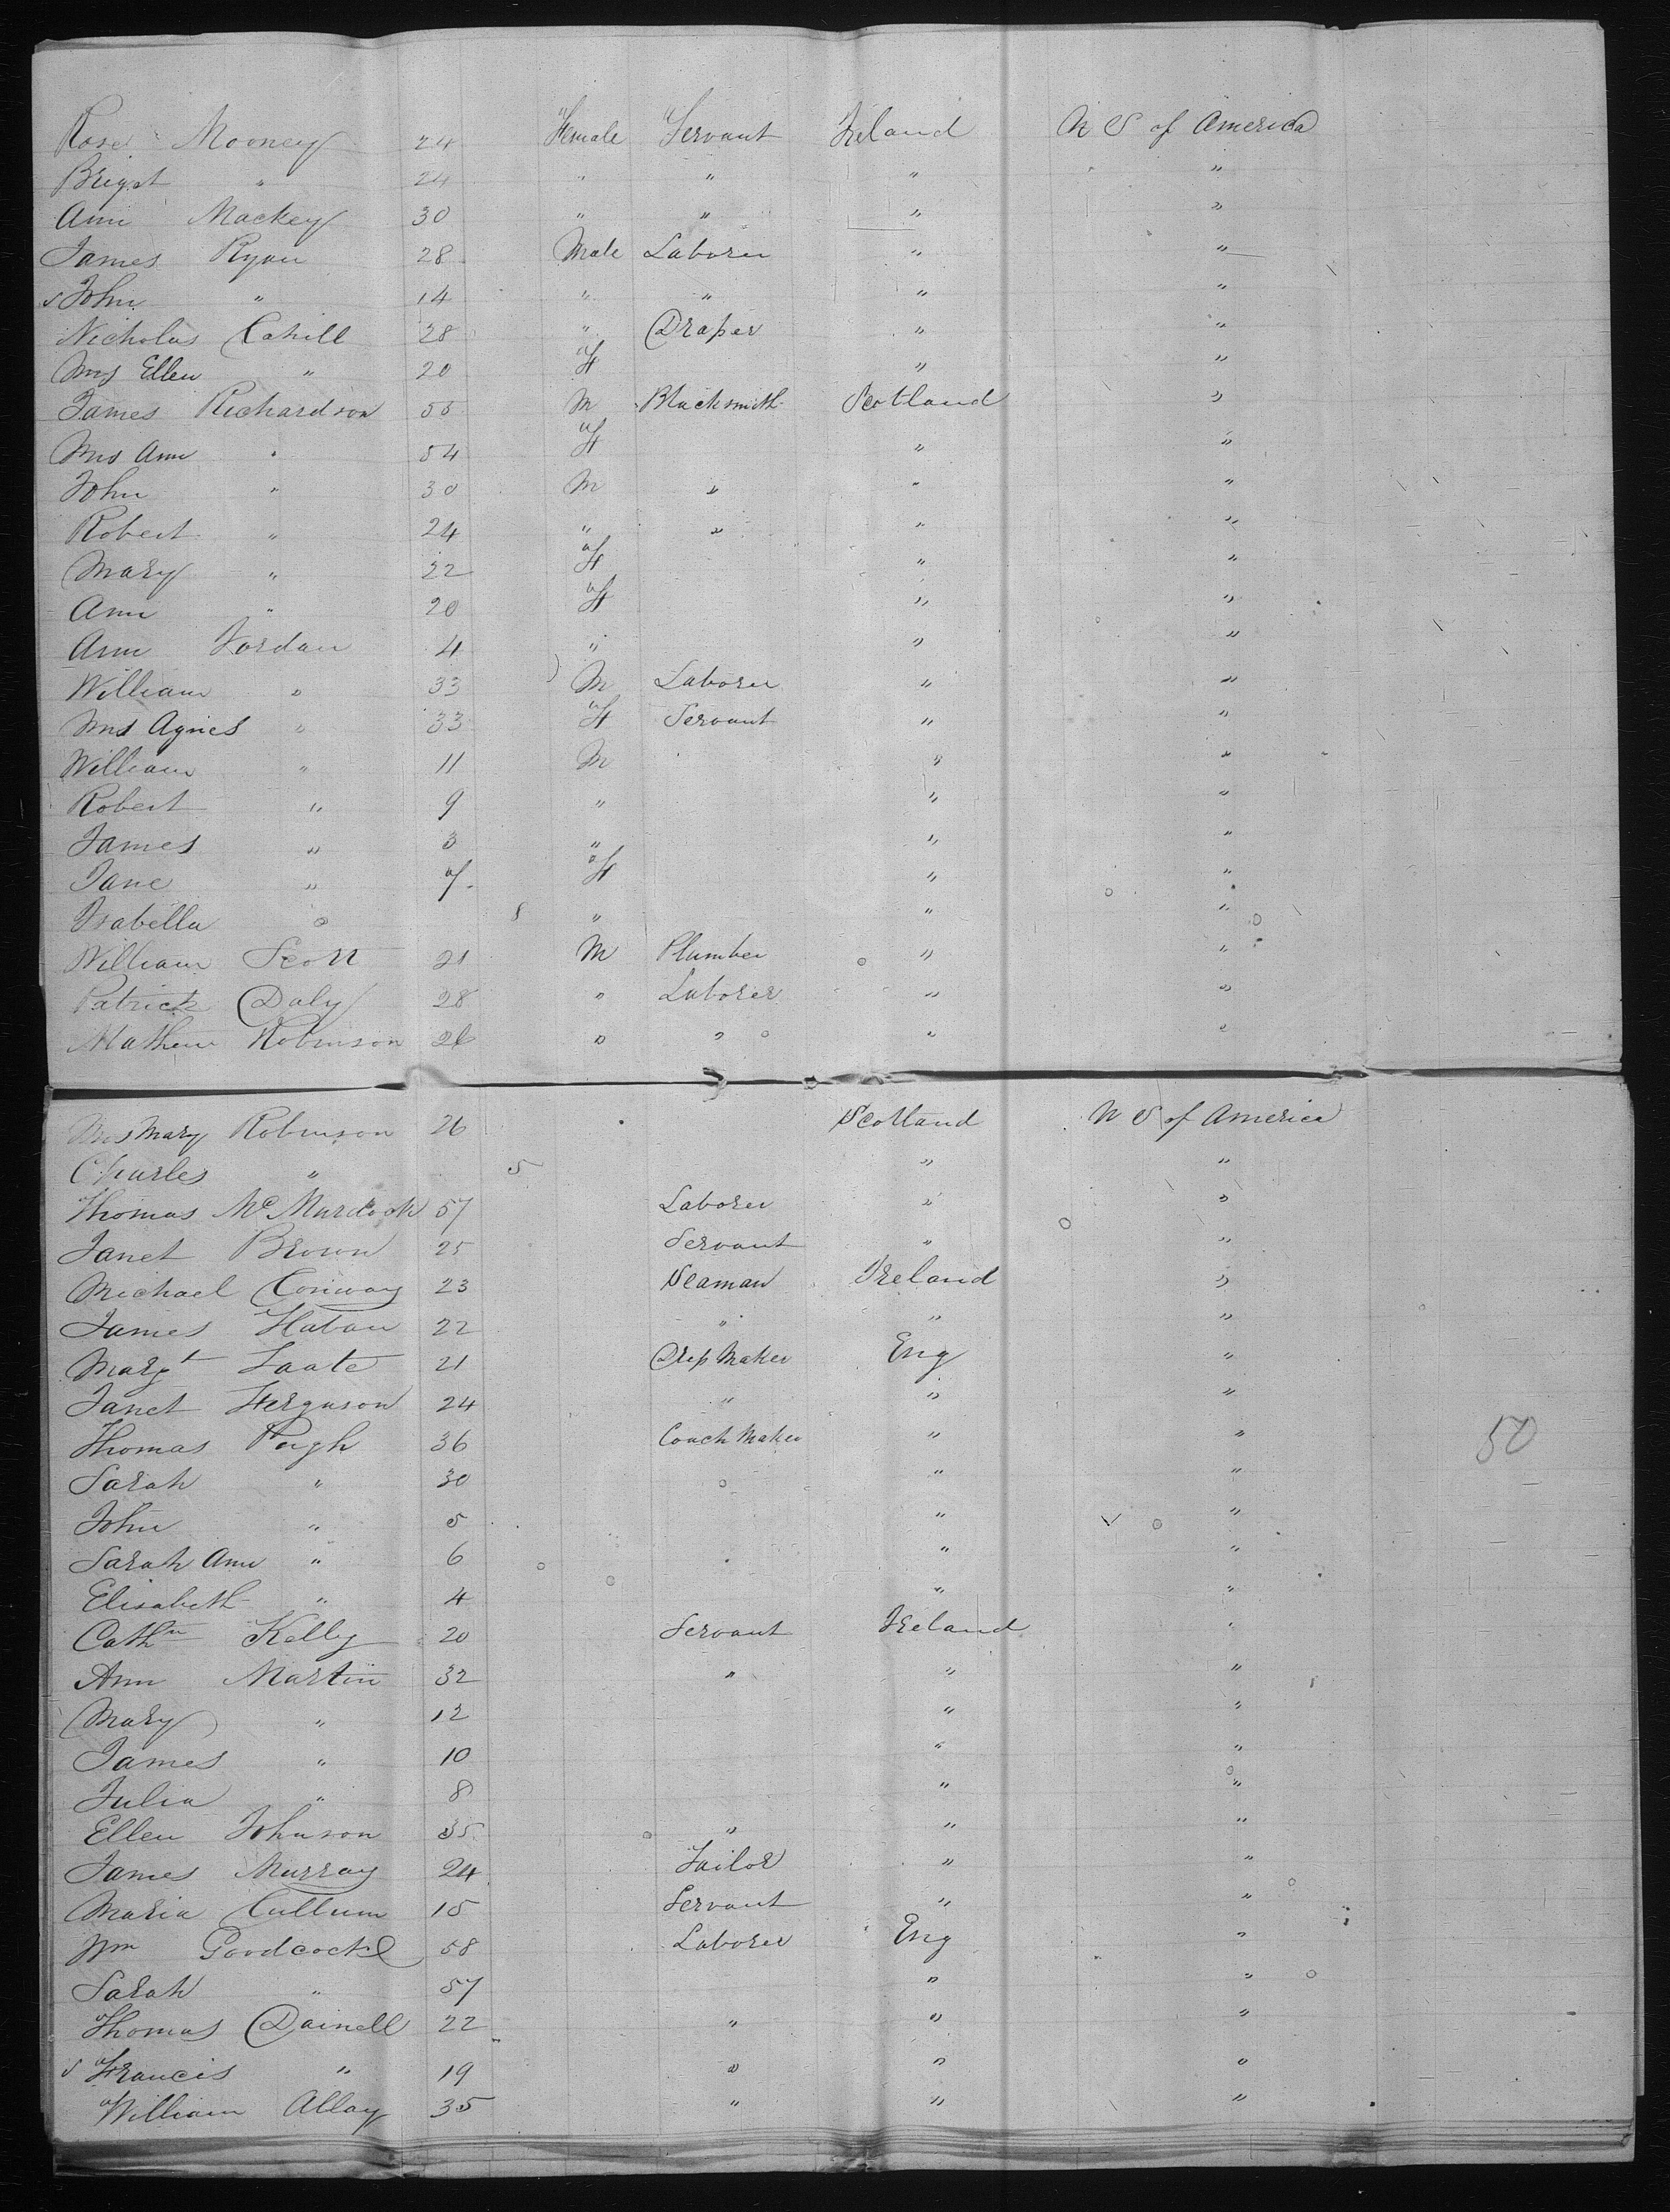 Rose Mooney 24 Female Servant Ireland U S of America
Briget " 24 " " " "
Ann Mackey 30 " " " "
James Ryan 28 Male Laborer " "
John " 14 " " " "
Nicholas Cahill 28 " Draper " "
Mrs Ellen " 20 F " "
James Richardson 55 M Blacksmith Scotland "
Mrs Ann " 54 F " "
John " 30 M " " "
Robert " 24 " " " "
Mary " 22 F " "
Ann " 20 F " "
Ann Jordan 4 " " "
William " 33 M Laborer " "
Mrs Agnes " 33 F Servant " "
William " 11 M " "
Robert " 9 " " "
James " 3 " " "
Jane " 7 F " "
Isabella " 8 " " "
William Scott 21 M Plumber " "
Patrick Daly 28 " Laborer " "
Mathew Robinson 26 " " " "
Mrs Mary Robinson 26 Scotland U S of America
Charles " 5 " "
Thomas McMurdock 57 Laborer " "
Janet Brown 25 Servant " "
Michael Conway 23 Seaman Ireland "
James Haban 22 " " "
Margt 21 Maker Eng "
Janet Ferguson 24 " " "
Thomas Pugh 36 Coach Maker " "
Sarah " 30 " "
John " 5 " "
Sarah Ann " 6 " "
50
Elisabeth " 4 " "
Cathn Kelly 20 Servant Ireland "
Ann Martin 32 " " "
Mary " 12 " "
James " 10 " "
Julia " 8 " "
Ellen Johnson 35 " " "
James Murray 24 Tailor " "
Maria Cullum 15 Servant " "
Wm Goodcock 58 Laborer Eng "
Sarah " 57 " "
Thomas Dainell 22 " " "
Francis " 19 " " "
William Allay 35 " " "